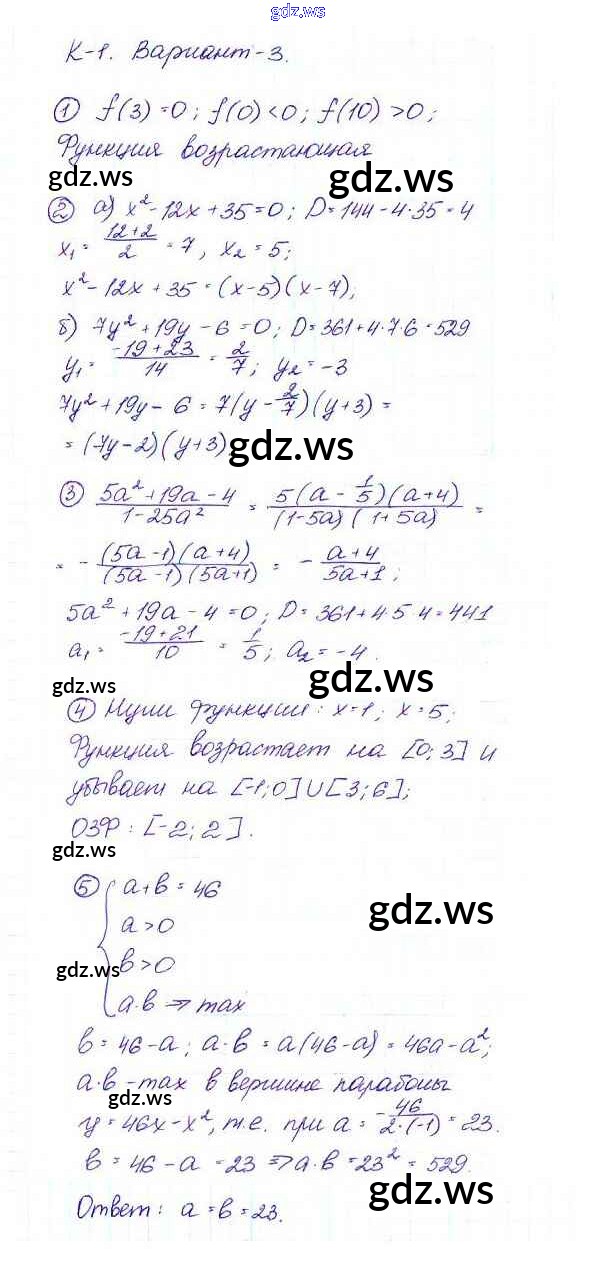 gdz.ws
К-1. Вариант-3.
① f(3)=0; f(0)<0; f(10)>0;
Функция возрастающая
gdz.ws gdz.ws
② а) x²-12x+35=0; D=144-4·35=4
x₁=(12+2)/2=7, x₂=5;
x²-12x+35=(x-5)(x-7);
б) 7y²+19y-6=0; D=361+4·7·6=529
y₁=(-19+23)/14=2/7; y₂=-3
7y²+19y-6=7(y-2/7)(y+3)=
=(7y-2)(y+3) gdz.ws
③ (5a²+19a-4)/(1-25a²)=5(a-1/5)(a+4)/((1-5a)(1+5a))=
=-(5a-1)(a+4)/((5a-1)(5a+1))=-(a+4)/(5a+1);
5a²+19a-4=0; D=361+4·5·4=441
a₁=(-19+21)/10=1/5; a₂=-4.
gdz.ws gdz.ws
④ Нули функции: x=1; x=5;
Функция возрастает на [0;3] и
убывает на [-1;0]∪[3;6];
ОЗФ: [-2;2].
gdz.ws
⑤ { a+b=46
a>0 gdz.ws
b>0
gdz.ws
a·b ⇒ max
b=46-a; a·b=a(46-a)=46a-a²;
a·b-max в вершине параболы
gdz.ws
y=46x-x², т.е. при a=-46/(2·(-1))=23.
b=46-a=23⇒a·b=23²=529.
gdz.ws
Ответ: a=b=23.